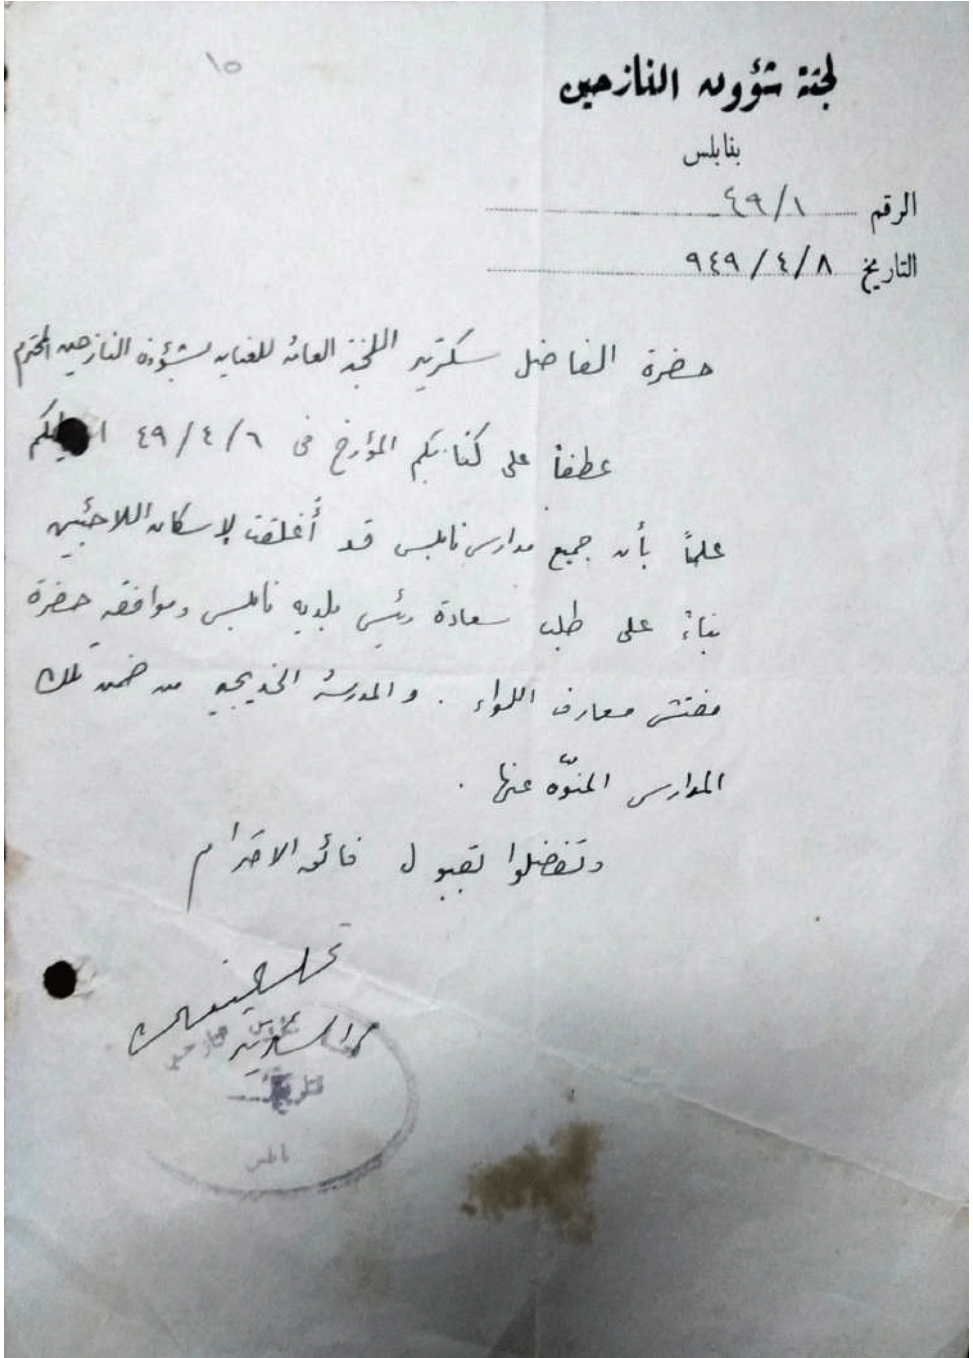 ١٥
لجنة شؤون النازحين
بنابلس
الرقم ٤٩/١
التاريخ ٩٤٩/٤/٨
حضرة الفاضل سكرتير اللجنة العامة للعناية بشؤون النازحين المحترم
عطفاً على كتابكم المؤرخ في ٤٩/٤/٦
علماً بأن جميع مدارس نابلس قد أُغلقت لإسكان اللاجئين
بناءً على طلب سعادة رئيس بلدية نابلس وموافقة حضرة
مفتش معارف اللواء . والمدرسة الخديجية من ضمن تلك
المدارس المنوّه عنها .
وتفضلوا بقبول فائق الاحترام
نابلس